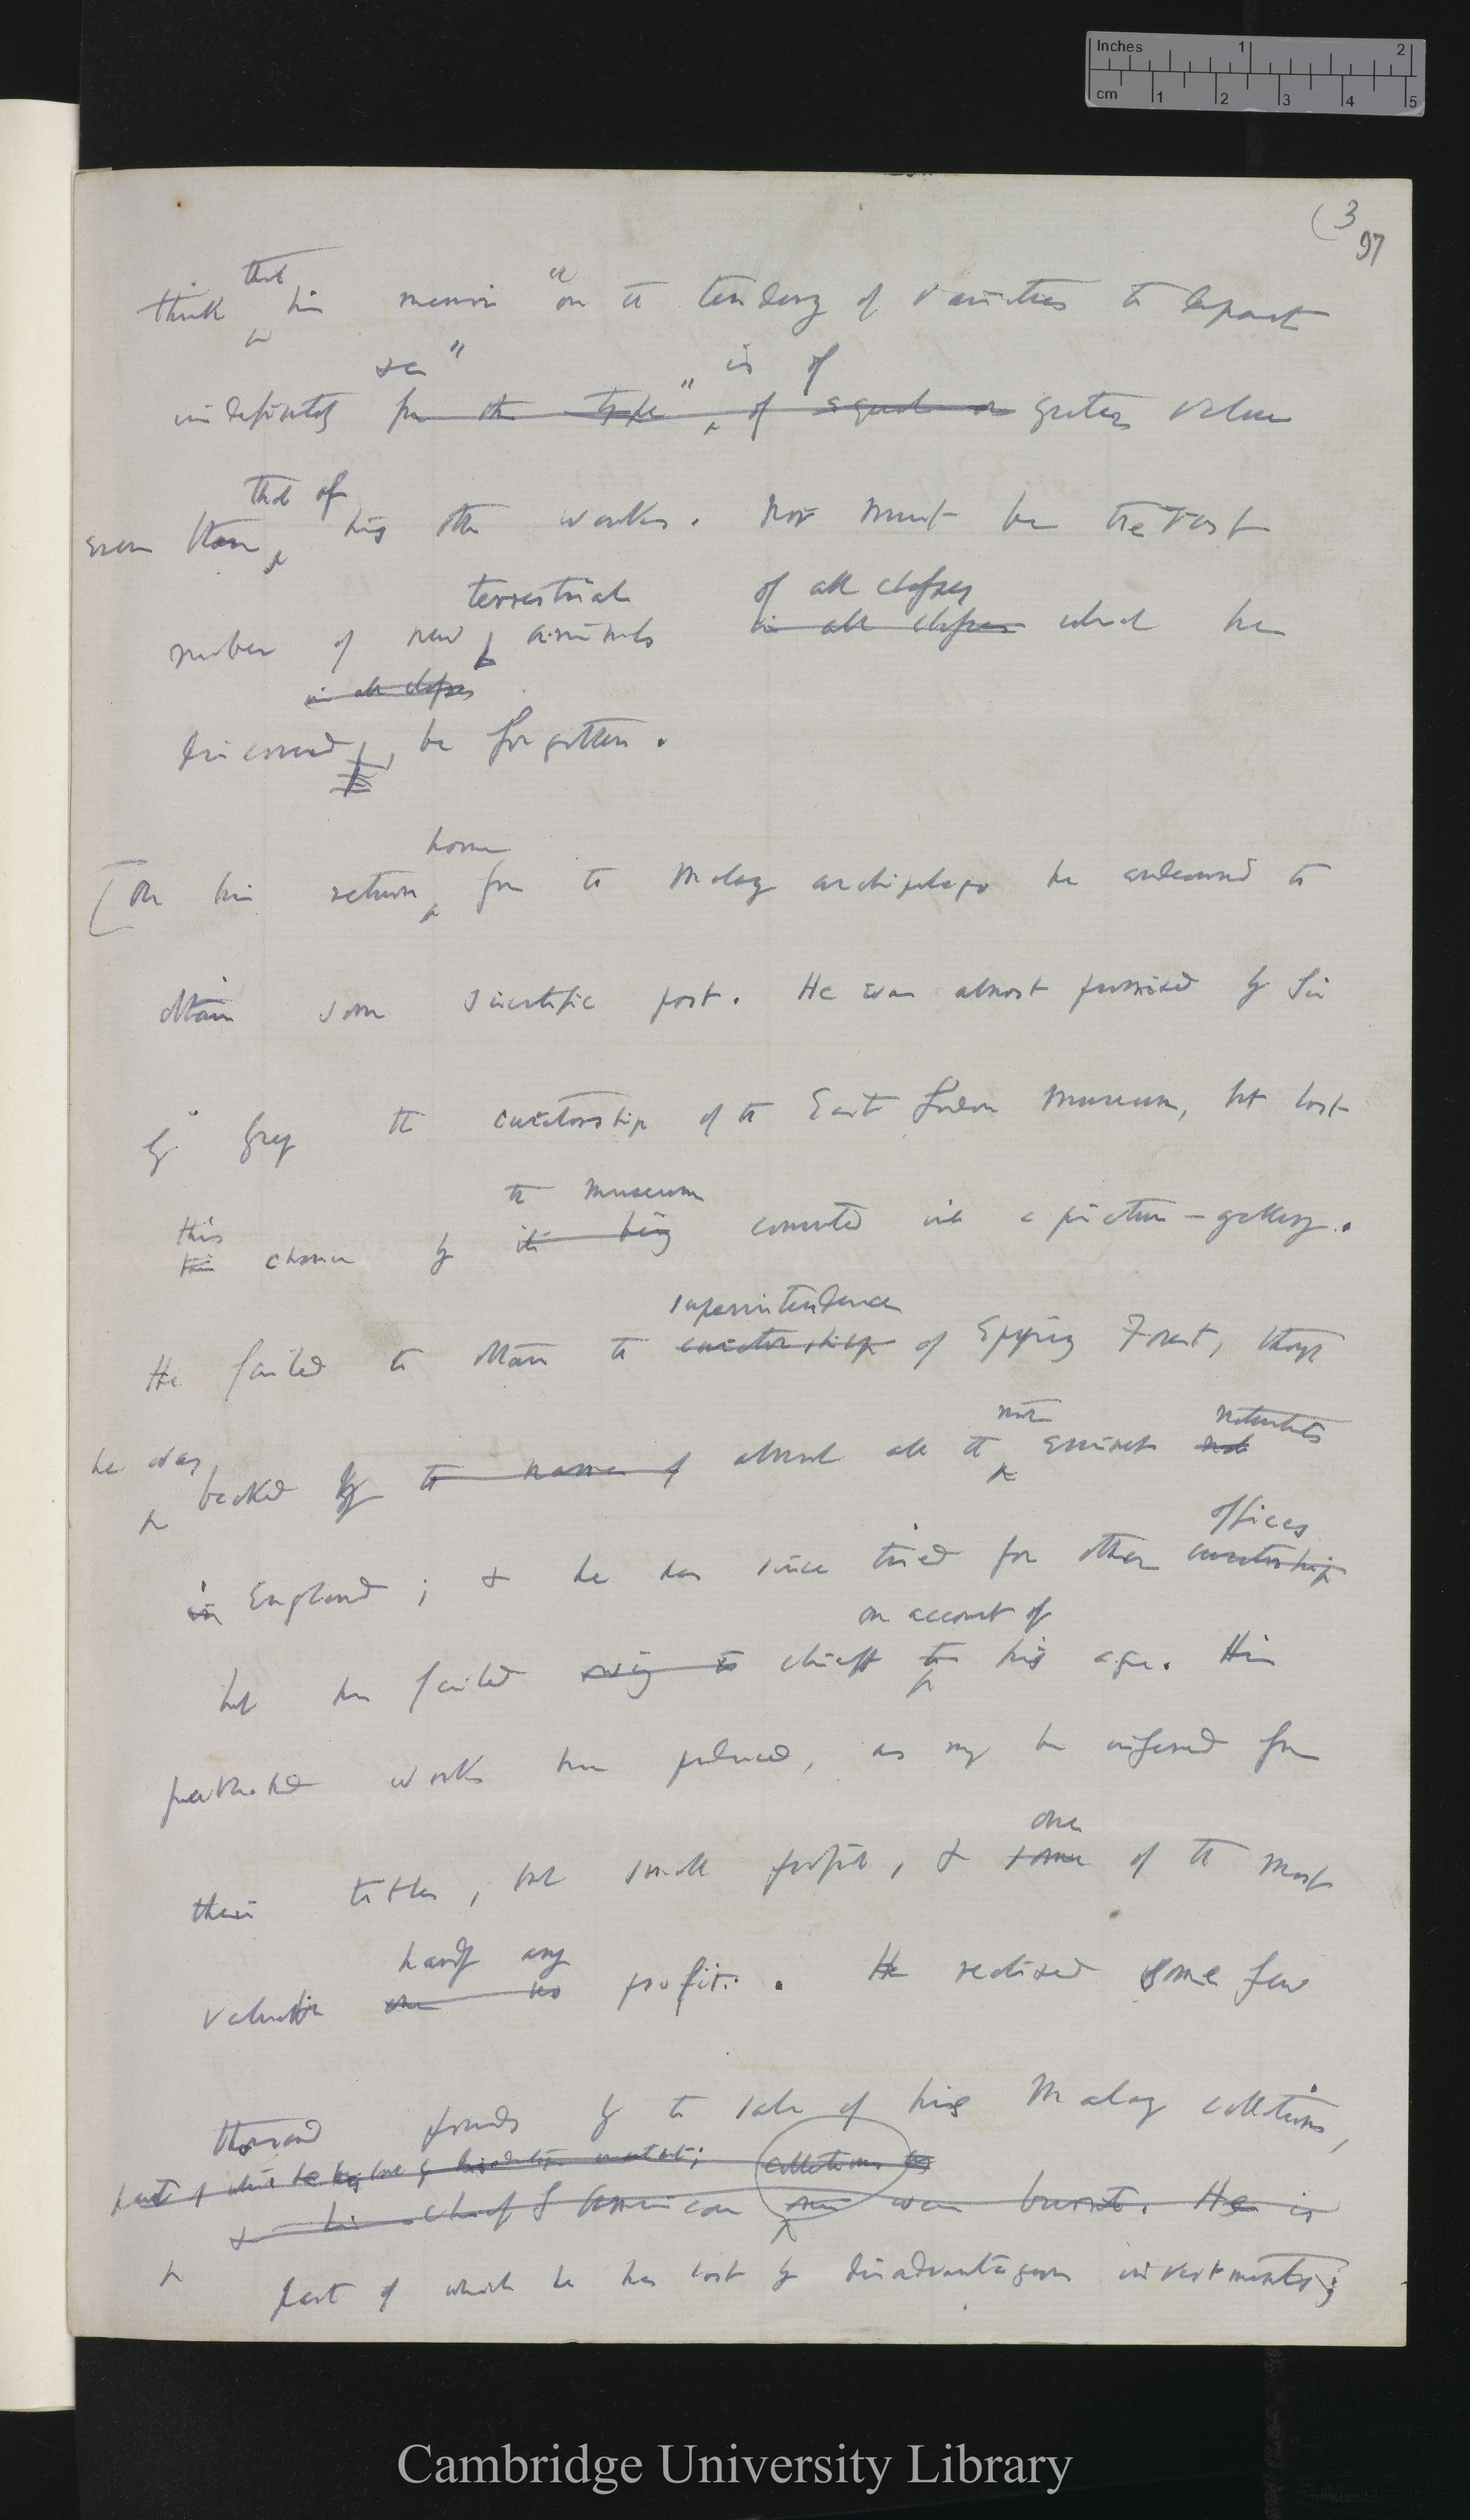 Inches 1 2
cm 1 2 3 4 5
(3
97
that
think his memoir "on the tendency of varieties to depart
&c" is of
indefinitely from the type", of equal or greater value
that of
even than his other works. Nor must be the vast
terrestrial of all classes
number of new animals in all classes which he
in all classes
discovered, be forgotten.
home
[On his return from the Malay archipelago he endeavoured to
obtain some scientific post. He was almost promised by Sir
G. Grey the curatorship of the East London Museum, but lost
the museum
this
the chance by its being converted into a picture-gallery.
superintendence
He failed to obtain the curatorship of Epping Forest, though
most naturalists
he was backed by the names of almost all the eminent
offices
in England; & he has since tried for other curatorship
on account of
but has failed owing to chiefly to his age. His
published works have produced, as may be inferred from
one
their titles, but small profit, & some of the most
hardly any
valuable no profit. He realised some few
thousand pounds by the sale of his Malay collections,
part of which he has lost by investments; collections
& his chief S American were burnt. He is
part of which he has lost by disadvantageous investments;
Cambridge University Library